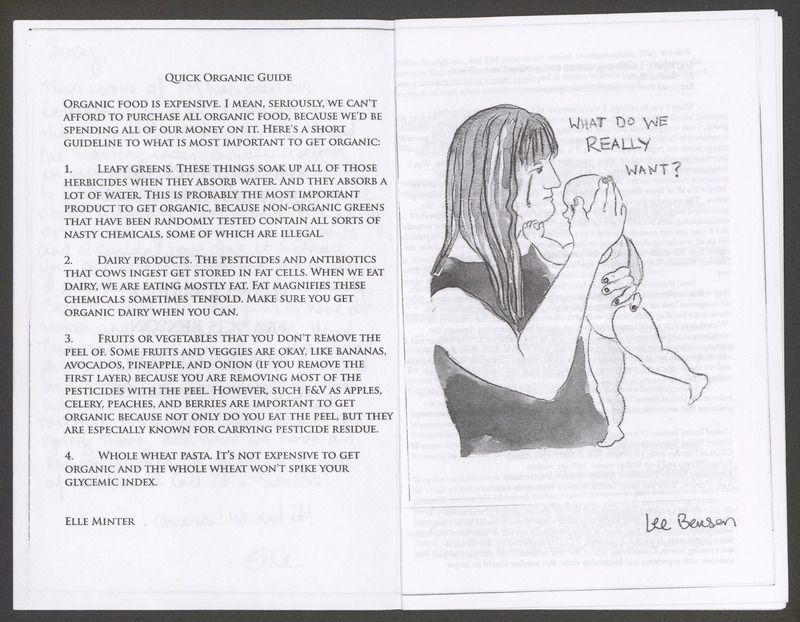 QUICK ORGANIC GUIDE
ORGANIC FOOD IS EXPENSIVE. I MEAN, SERIOUSLY, WE CAN'T
AFFORD TO PURCHASE ALL ORGANIC FOOD, BECAUSE WE'D BE
SPENDING ALL OF OUR MONEY ON IT. HERE'S A SHORT
GUIDELINE TO WHAT IS MOST IMPORTANT TO GET ORGANIC:
1. LEAFY GREENS. THESE THINGS SOAK UP ALL OF THOSE
HERBICIDES WHEN THEY ABSORB WATER. AND THEY ABSORB A
LOT OF WATER. THIS IS PROBABLY THE MOST IMPORTANT
PRODUCT TO GET ORGANIC, BECAUSE NON-ORGANIC GREENS
THAT HAVE BEEN RANDOMLY TESTED CONTAIN ALL SORTS OF
NASTY CHEMICALS, SOME OF WHICH ARE ILLEGAL.
2. DAIRY PRODUCTS. THE PESTICIDES AND ANTIBIOTICS
THAT COWS INGEST GET STORED IN FAT CELLS. WHEN WE EAT
DAIRY, WE ARE EATING MOSTLY FAT. FAT MAGNIFIES THESE
CHEMICALS SOMETIMES TENFOLD. MAKE SURE YOU GET
ORGANIC DAIRY WHEN YOU CAN.
3. FRUITS OR VEGETABLES THAT YOU DON'T REMOVE THE
PEEL OF. SOME FRUITS AND VEGGIES ARE OKAY, LIKE BANANAS,
AVOCADOS, PINEAPPLE, AND ONION (IF YOU REMOVE THE
FIRST LAYER) BECAUSE YOU ARE REMOVING MOST OF THE
PESTICIDES WITH THE PEEL. HOWEVER, SUCH F&V AS APPLES,
CELERY, PEACHES, AND BERRIES ARE IMPORTANT TO GET
ORGANIC BECAUSE NOT ONLY DO YOU EAT THE PEEL, BUT THEY
ARE ESPECIALLY KNOWN FOR CARRYING PESTICIDE RESIDUE.
4. WHOLE WHEAT PASTA. IT'S NOT EXPENSIVE TO GET
ORGANIC AND THE WHOLE WHEAT WON'T SPIKE YOUR
GLYCEMIC INDEX.
ELLE MINTER
WHAT DO WE
REALLY
WANT?
Lee Benson